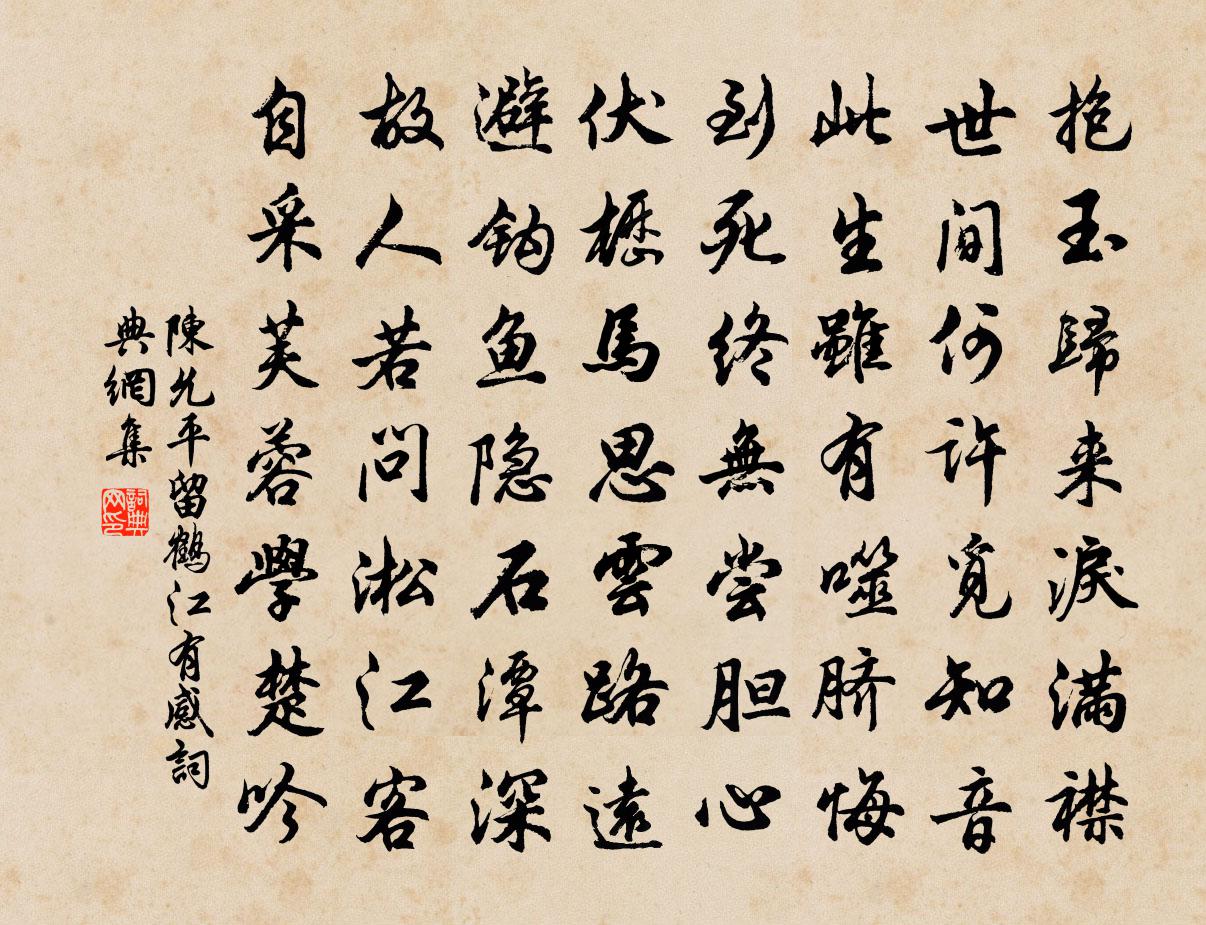 抱玉歸来淚满襟
世间何许觅知音
此生雖有噬脐悔
到死终無尝胆心
伏櫪馬思雲路遠
避钩鱼隐石潭深
故人若问淞江客
自采芙蓉學楚吟
陳允平留鶴江有感詞
典網集
詞典
网印